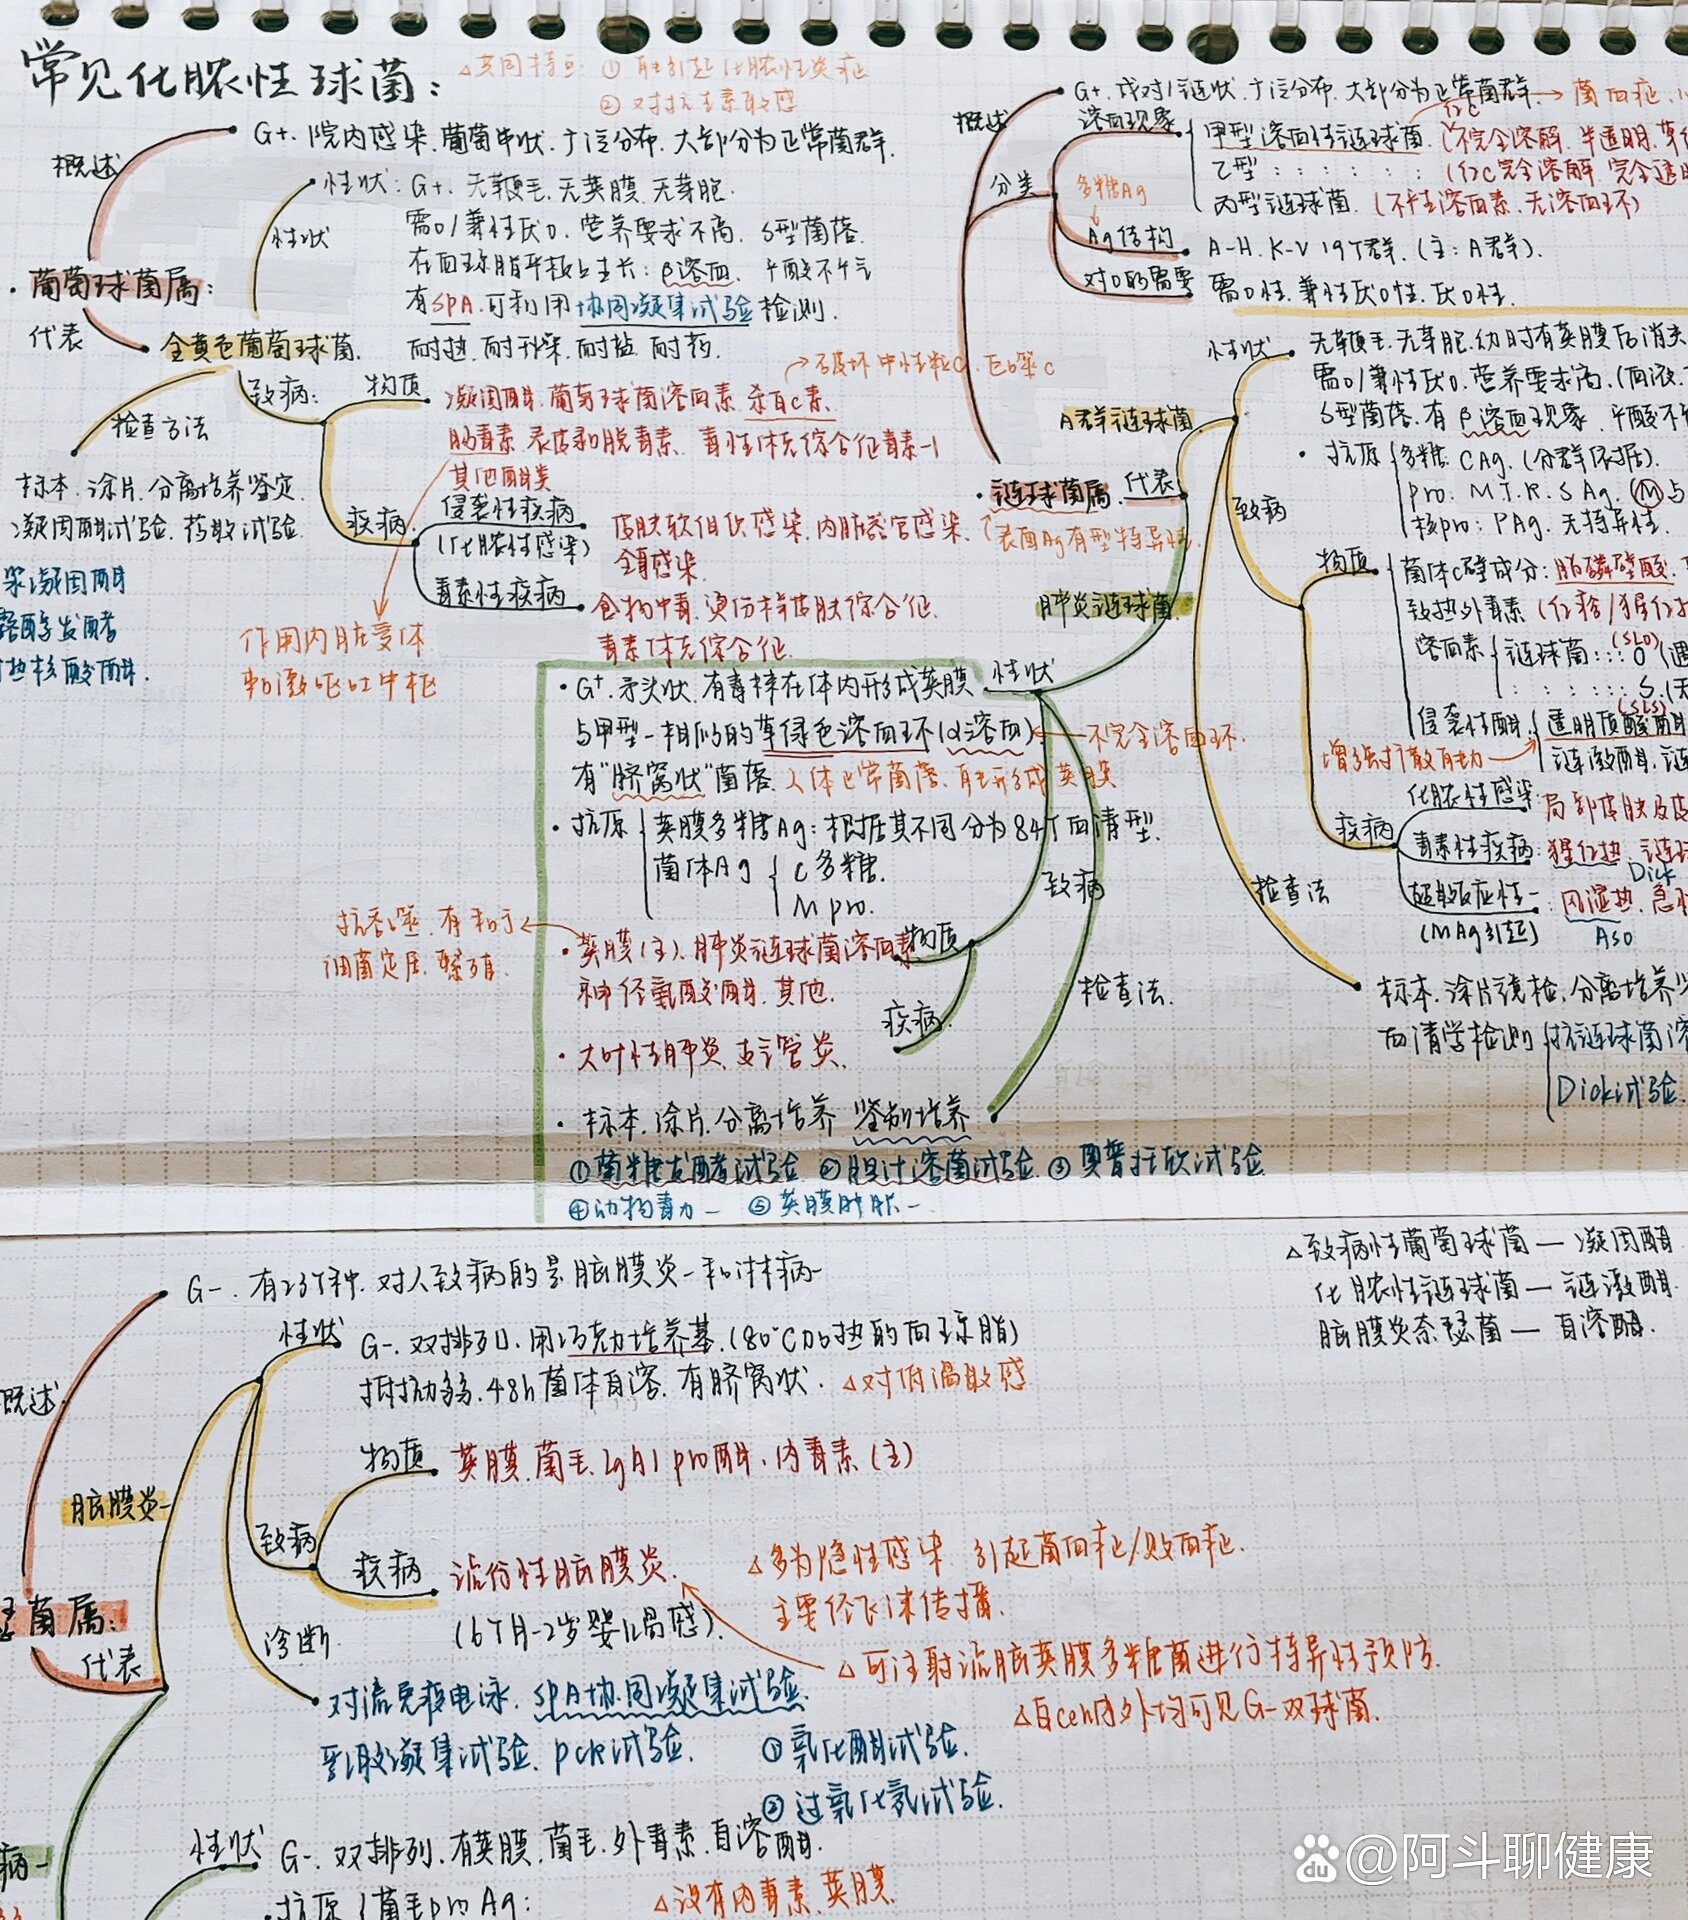 常见化脓性球菌:
△共同特点: ① 能引起化脓性炎症
② 对抗生素敏感
概述
G+. 院内感染. 葡萄串状. 广泛分布. 大部分为正常菌群.
性状
性状: G+. 无鞭毛. 无荚膜. 无芽胞.
需O/兼性厌O. 营养要求不高. S型菌落.
在血琼脂平板上生长: β溶血.
有SPA. 可利用协同凝集试验检测.
耐热. 耐干燥. 耐盐. 耐药.
· 葡萄球菌属:
代表
金黄色葡萄球菌.
检查方法
标本. 涂片. 分离培养鉴定.
凝固酶试验. 药敏试验.
浆凝固酶
露醇发酵
热核酸酶.
致病:
物质
凝固酶. 葡萄球菌溶血素. 杀白C素.
→破坏中性粒C. 巨噬C
肠毒素. 表皮剥脱毒素. 毒性休克综合征毒素-1
其他酶类
作用内脏受体
和激呕吐中枢
疾病
侵袭性疾病
(化脓性感染)
皮肤软组织感染. 内脏器官感染.
全身感染.
毒素性疾病
食物中毒. 烫伤样皮肤综合征.
毒素休克综合征.
概述
G+. 成对/链状. 广泛分布. 大部分为正常菌群. → 菌血症.
分类
溶血现象
甲型溶血性链球菌. (不完全溶解. 半透明. 草
红C
乙型 : : : : : : : (红C完全溶解. 完全透
丙型链球菌. (不产生溶血素. 无溶血环)
多糖Ag
Ag结构
A-H. K-V 19个群. (主: A群).
对O的需要
需O性. 兼性厌O性. 厌O性.
· 链球菌属.
代表
(表面Ag有型特异性.
A群链球菌
性状
无鞭毛. 无芽胞. 幼时有荚膜后消失
需O/兼性厌O. 营养要求高. (血液.
S型菌落. 有β溶血现象.
· 抗原
多糖: CAg. (分群依据).
pro: M.T.R.S Ag. (M与
核pro: PAg. 无特异性.
致病
物质
菌体C壁成分: 脂磷壁酸.
致热外毒素 (红疹/猩红
溶血素
链球菌 : : : O (遇
(SLO)
: : : : : : S. (无
(SLS)
侵袭性酶
透明质酸酶
链激酶. 链
增强扩散能力
疾病
化脓性感染:
局部皮肤及皮
毒素性疾病: 猩红热. 链球
Dick
超敏反应性- : 风湿热. 急性
(MAg引起)
ASO
检查法
标本. 涂片镜检. 分离培养鉴
血清学检测
抗链球菌溶
Dick试验.
肺炎链球菌.
性状
· G⁺. 矛头状. 有毒株在体内形成荚膜
与甲型-相似的草绿色溶血环(α溶血). ← 不完全溶血环.
有"脐窝状"菌落. 人体正常菌落. 能形成荚膜
· 抗原
荚膜多糖Ag: 根据其不同分为84个血清型.
菌体Ag
C多糖.
M pro.
致病
物质
· 荚膜(主). 肺炎链球菌溶血素
神经氨酸酶. 其他.
抗吞噬. 有利于
细菌定居. 繁殖.
疾病.
· 大叶性肺炎. 支气管炎.
检查法.
· 标本. 涂片. 分离培养 鉴别培养
① 菊糖发酵试验 ② 胆汁溶菌试验 ③ 奥普托欣试验
④ 动物毒力- ⑤ 荚膜肿胀-
△致病性葡萄球菌 — 凝固酶
化脓性链球菌 — 链激酶.
脑膜炎奈瑟菌 — 自溶酶.
概述
G-. 有23个种. 对人致病的是脑膜炎-和淋病-
性状
G-. 双排列. 用巧克力培养基. (80℃加热的血琼脂)
抵抗力弱. 48h菌体自溶. 有脐窝状. △对低温敏感
脑膜炎-
菌属:
代表
致病
物质
荚膜. 菌毛. IgA1 pro酶. 内毒素(主)
疾病
流行性脑膜炎.
(6个月-2岁婴儿易感).
△多为隐性感染. 引起菌血症/败血症.
主要经飞沫传播.
△可注射流脑荚膜多糖菌进行特异性预防.
△白cell内外均可见G-双球菌.
诊断.
对流免疫电泳. SPA协同凝集试验
乳胶凝集试验. pcR试验.
① 氧化酶试验.
② 过氧化氢试验.
病-
性状
G-. 双排列. 有荚膜. 菌毛. 外毒素. 自溶酶.
· 抗原
菌毛pro Ag:
△没有内毒素. 荚膜
Baidu @阿斗聊健康